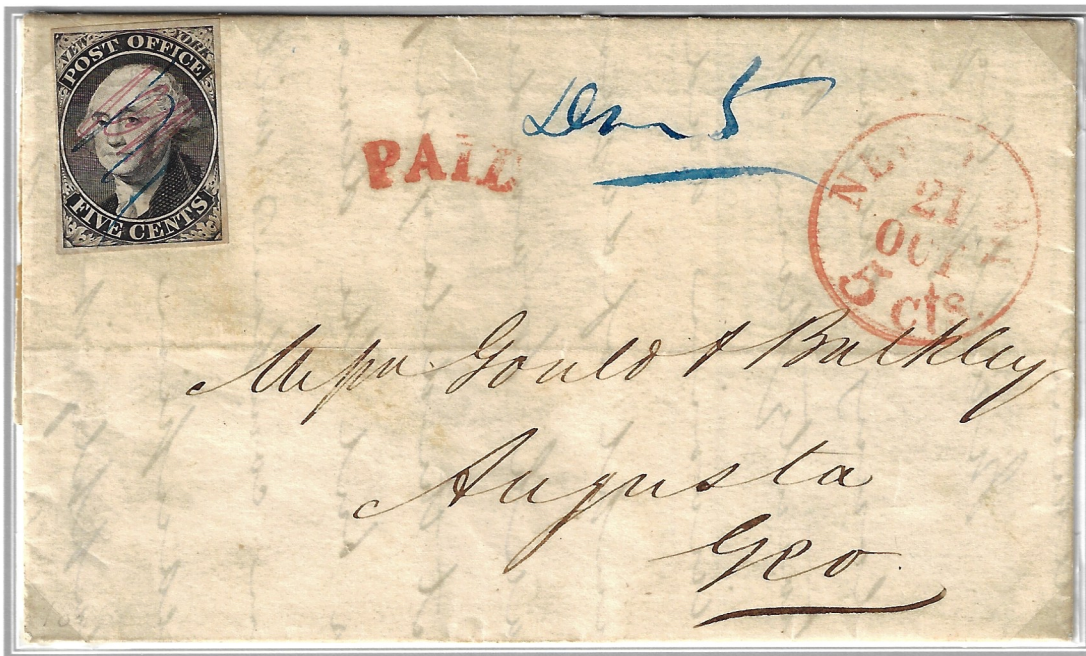 NEW YORK
POST OFFICE
FIVE CENTS
PAID
Due 5
NEW
21
OCT
5 cts.
Messrs Gould & Bulkley
Augusta
Geo